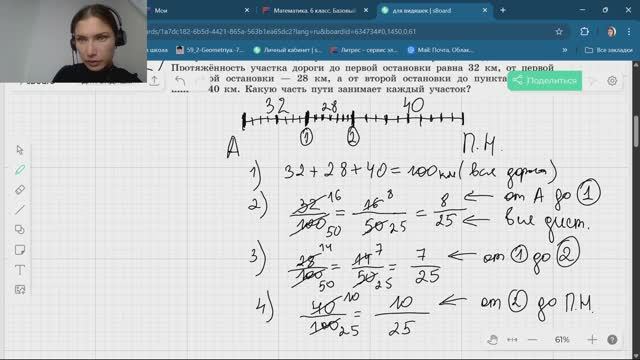 Мои
Математика. 6 класс. Базовый
для видяшек | sBoard
ards/1a7dc182-6b5d-4421-865a-563b1ea65dc2?lang=ru&boardId=634734#0,1450,0.61
школа
59_2-Geometriya. -7
Личный кабинет | s
Литрес – сервис эл
Mail: Почта, Облак
Все закладки
Протяжённость участка дороги до первой остановки равна 32 км, от первой
остановки — 28 км, а от второй остановки до пункта
40 км. Какую часть пути занимает каждый участок?
Поделиться
32 28 40
А 1 2 П.Н.
1) 32 + 28 + 40 = 100 км (вся дорога)
2) 32/100 16/50 = 16/50 8/25 = 8/25 ← от А до 1
← вся дист.
3) 28/100 14/50 = 14/50 7/25 = 7/25 ← от 1 до 2
4) 40/100 10/25 = 10/25 ← от 2 до П.Н.
61%